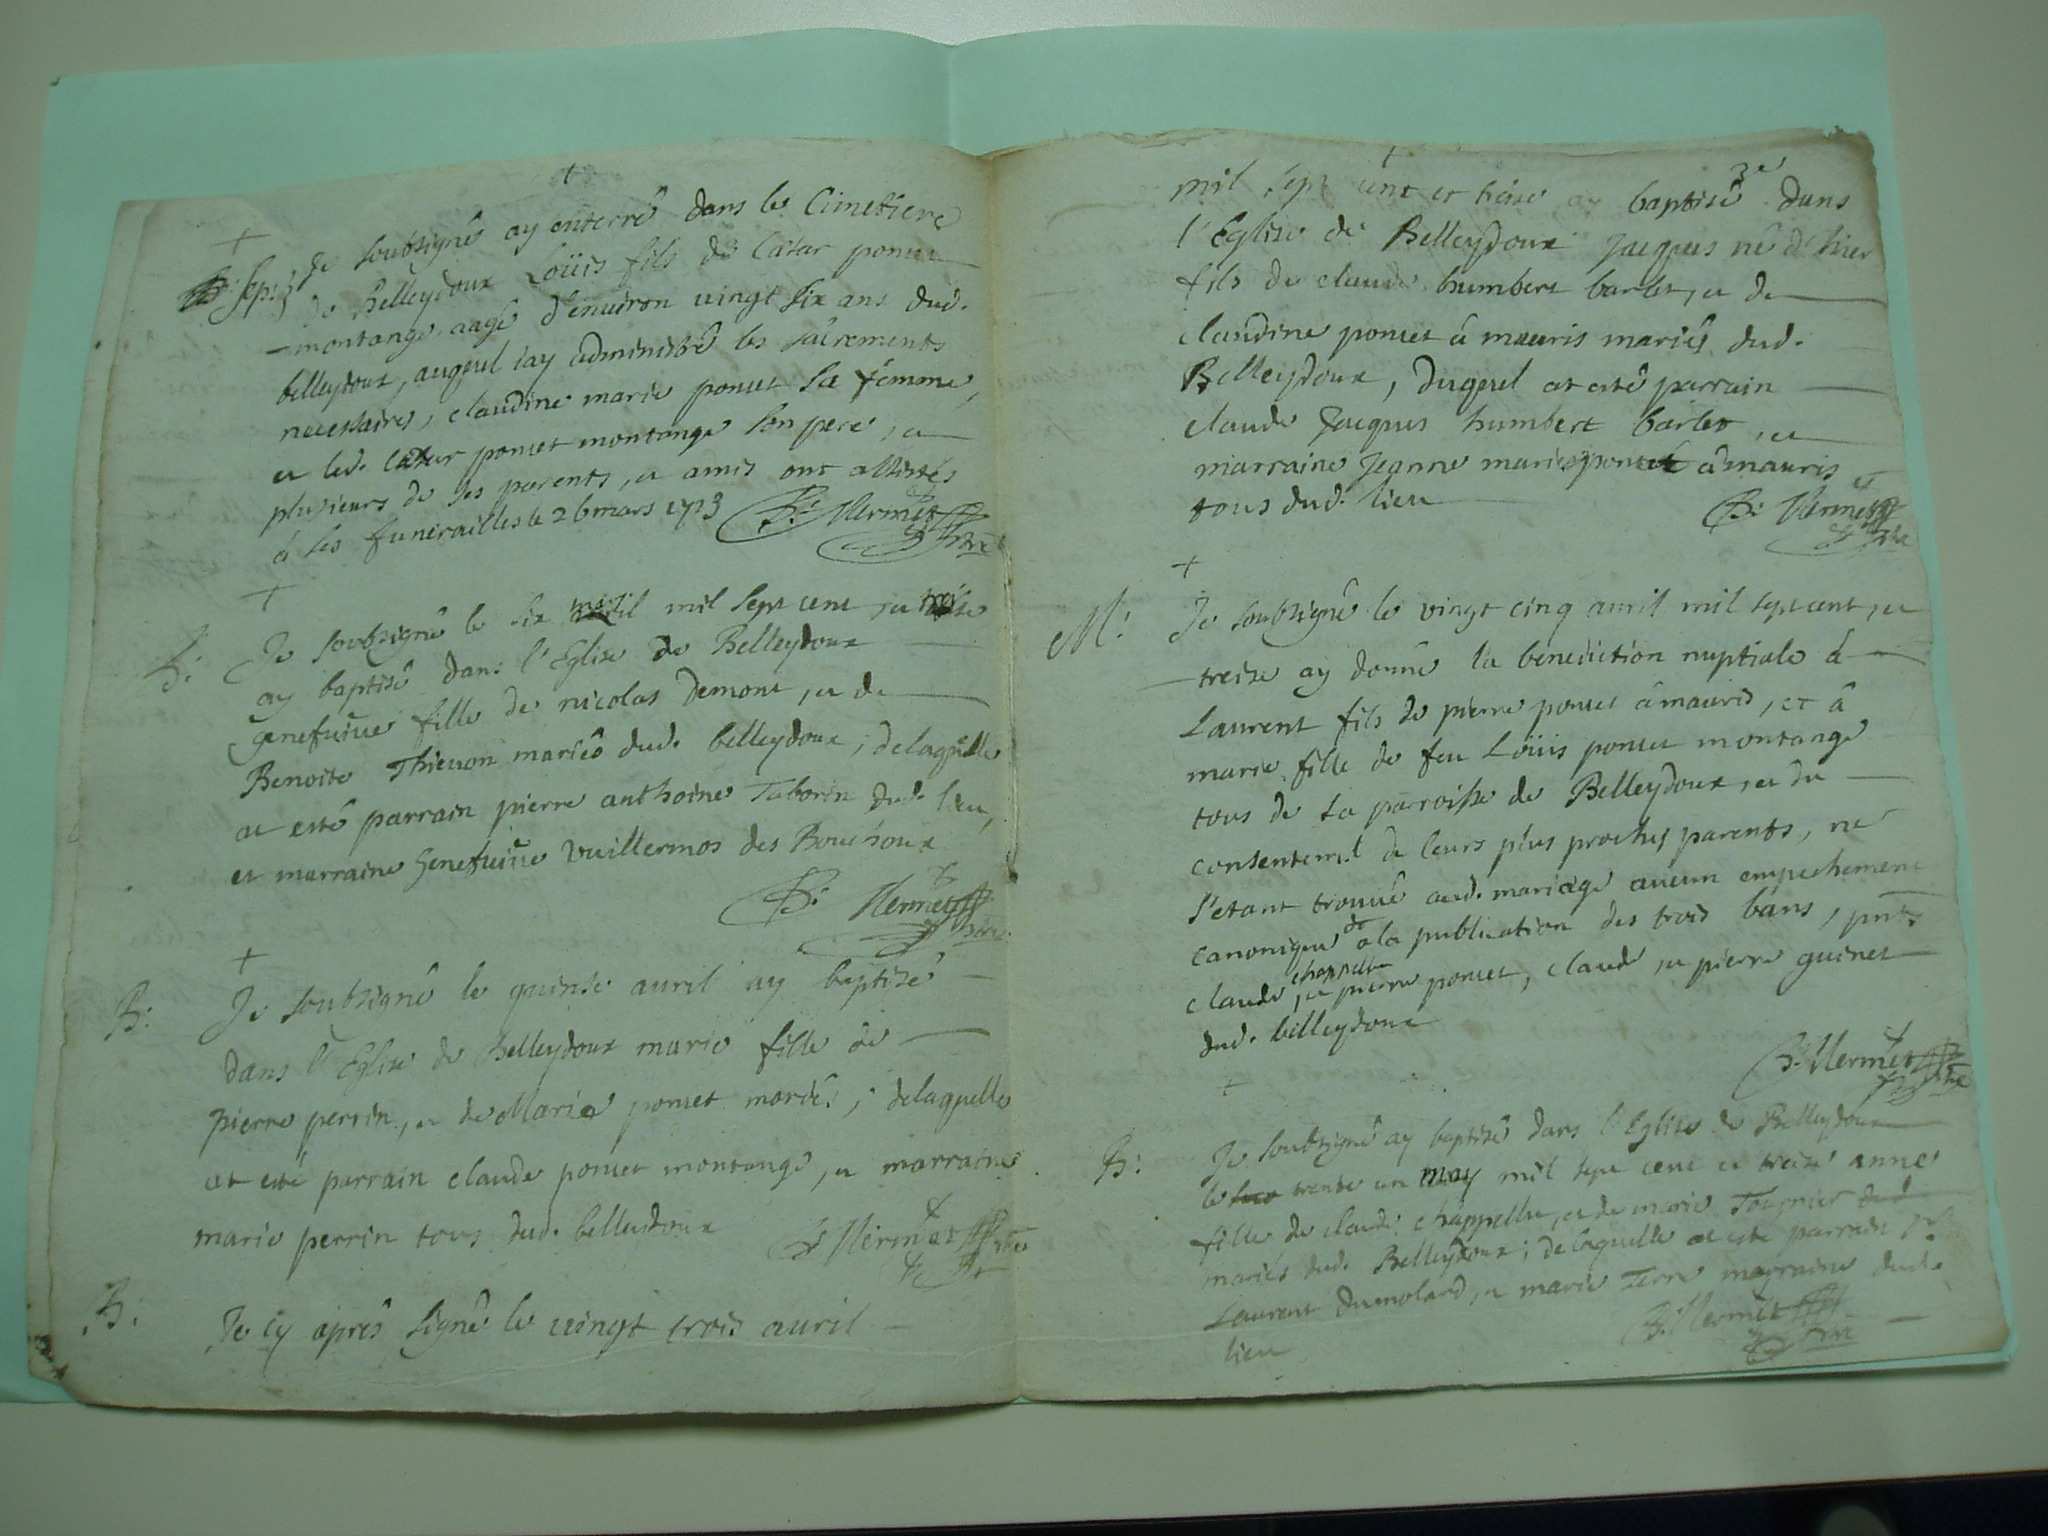 Sep: Je soubsigné ay enterré dans le Cimetiere
de Belleydoux Loüis fils de Cæsar poncet
montange aagé d'environ vingt six ans dud.
belleydoux, auquel j'ay administré les sacrements
necessaires, claudine marie poncet sa femme,
et led. Cæsar poncet montange son pere, et
plusieurs de ses parents, et amis ont assistés
à ses funerailles le 26 mars 1713 B: Mermet
B: Je soubsigné le six mil sept cent et treise
ay baptisé dans l'Eglise de Belleydoux
genefuive fille de nicolas Demont, et de
Benoite Thievon mariés dud. belleydoux, delaquelle
at esté parrain pierre anthoine Taborin dud. lieu,
et marraine Genefuive Vuillermos des Bouchoux
B: Mermet
B: Je soubsigné le quinse avril ay baptisé
dans l'Eglise de Belleydoux marie fille de
pierre perrin, et de Marie poncet mariés, delaquelle
at esté parrain claude poncet montange, et marraine
marie perrin tous dud. belleydoux B Mermet
B: Je cy après signé le vingt trois avril
mil sept cent et treise ay baptisé dans
l'Eglise de Belleydoux Jacques né d'hier
fils de claude humbert barlet, et de
claudine poncet à mauris mariés dud.
Belleydoux, duquel at esté parrain
claude Jacques humbert barlet, et
marraine Jeanne marie poncet à mauris
tous dud. lieu B: Mermet
M: Je soubsigné le vingt cinq avril mil sept cent, et
treise ay donné la benediction nuptiale à
Laurent fils de pierre poncet à mauris, et à
marie fille de feu Loüis poncet montange
tous de la paroisse de Belleydoux, et du
consentem.t de leurs plus proches parents, ne
s'etant trouvé aud. mariage aucun empechement
canonique à la publication des trois bans, pnts
claude chappellu, et pierre poncet, claude et pierre guinet
dud. belleydoux
B: Mermet
B: Je soubsigné ay baptisé dans l'Eglise de Belleydoux
le trente un may mil sept cent et treise anne
fille de claude chappellu, et de marie Tournier dud
mariés dud. Belleydoux; delaquelle at esté parrain
Laurent dumolard, et marie Terre marraine dud.
lieu B: Mermet